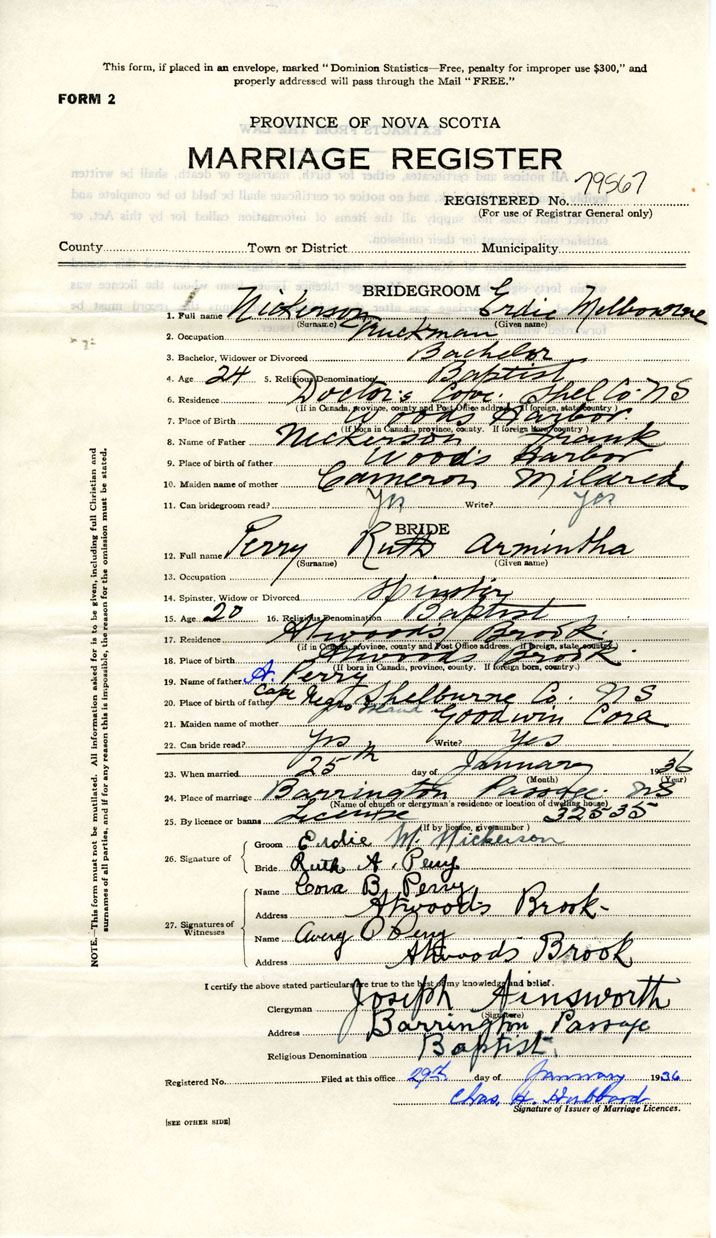 This form, if placed in an envelope, marked "Dominion Statistics—Free, penalty for improper use $300," and
properly addressed will pass through the Mail "FREE."
FORM 2
PROVINCE OF NOVA SCOTIA
MARRIAGE REGISTER
REGISTERED No. 79567
(For use of Registrar General only)
County Town or District Municipality
BRIDEGROOM
1. Full name Nickerson Erdie Melbourne
(Surname) (Given name)
2. Occupation Truckman
3. Bachelor, Widower or Divorced Bachelor
4. Age 24 5. Religious Denomination Baptist
6. Residence Doctor's Cove. Shel Co. NS
(If in Canada, province, county and Post Office address. If foreign, state country)
7. Place of Birth Woods Harbor
(If born in Canada, province, county. If foreign born, country.)
8. Name of Father Nickerson Frank
9. Place of birth of father Wood's Harbor
10. Maiden name of mother Cameron Mildred
11. Can bridegroom read? Yes Write? Yes
BRIDE
12. Full name Perry Ruth Armintha
(Surname) (Given name)
13. Occupation
14. Spinster, Widow or Divorced Spinster
15. Age 20 16. Religious Denomination Baptist
17. Residence Atwoods Brook
(if in Canada, province, county and Post Office address. If foreign, state country.)
18. Place of birth Atwoods Brook
(If born in Canada, province, county. If foreign born, country.)
19. Name of father A. Perry
20. Place of birth of father Cape Negro Island Shelburne Co. NS
21. Maiden name of mother Goodwin Cora
22. Can bride read? Yes Write? Yes
23. When married 25th day of January 1936
(Month) (Year)
24. Place of marriage Barrington Passage. NS
(Name of church or clergyman's residence or location of dwelling house)
25. By licence or banns License 32535
(If by licence, give number)
26. Signature of
Groom Erdie M. Nickerson
Bride Ruth A. Perry
27. Signatures of Witnesses
Name Cora B. Perry
Address Atwoods Brook-
Name Avery O Perry
Address Atwood's Brook
I certify the above stated particulars are true to the best of my knowledge and belief.
Clergyman Joseph Ainsworth
(Signature)
Address Barrington Passage
Religious Denomination Baptist.
Registered No. Filed at this office 29th day of January 1936
Chas. H. Hubbard
Signature of Issuer of Marriage Licences.
[SEE OTHER SIDE]
NOTE.—This form must not be mutilated. All information asked for is to be given, including full Christian and
surnames of all parties, and if for any reason this is impossible, the reason for the omission must be stated.